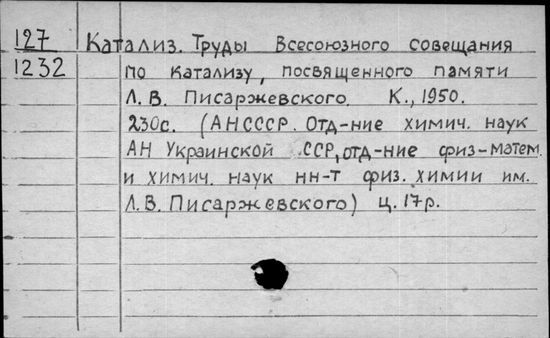 127 Катализ. Труды Всесоюзного совещания
1232 по катализу, посвященного памяти
Л. В. Писаржевского. К., 1950.
230с. (АНСССР. Отд-ние химич. наук
АН Украинской ССР, отд-ние физ-матем.
и химич. наук нн-т физ. химии им.
Л. В. Писаржевского) ц. 17р.